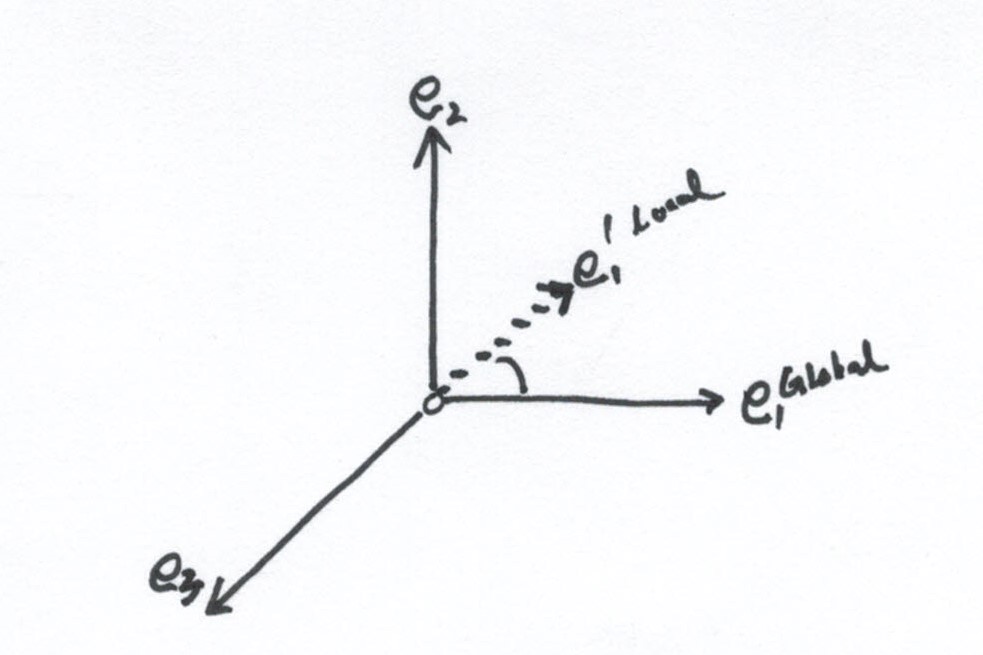 e₂
e₁' Local
e₁ Global
e₃